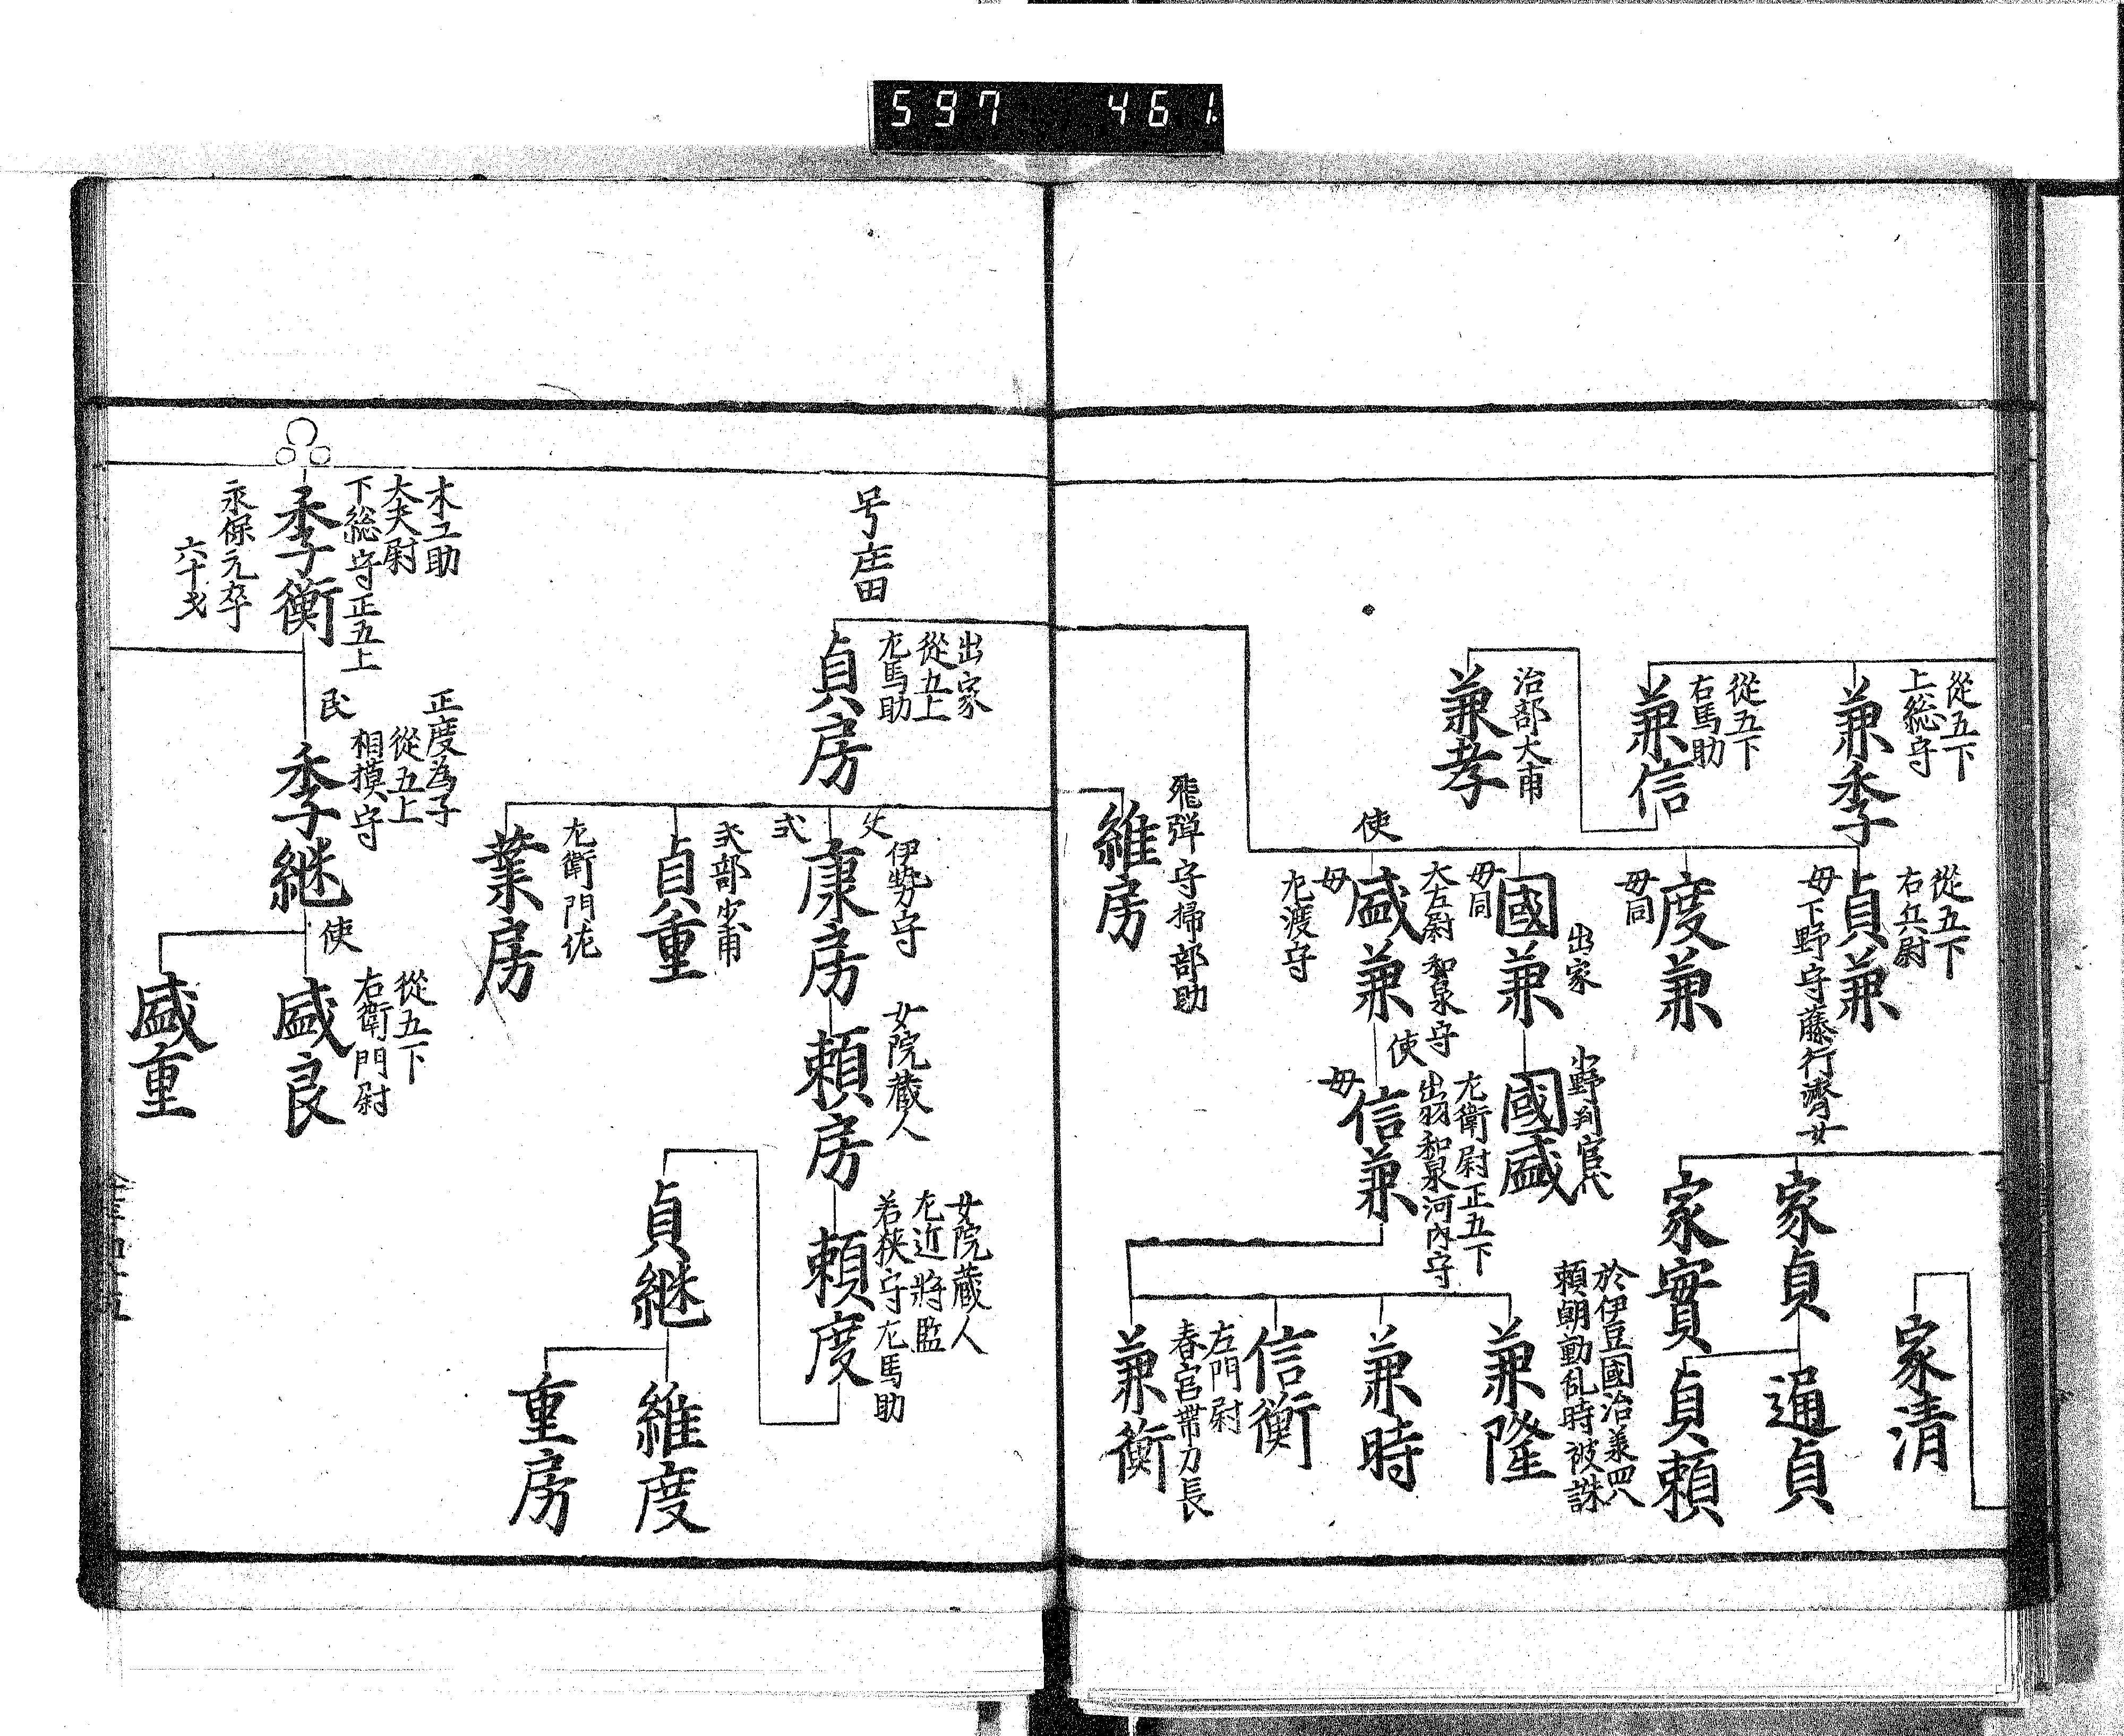 597 461
從五下
上総守
兼季
從五下
右馬助
兼信
治部大甫
兼孝
從五下
右兵尉
貞兼
母下野守藤行濟女
度兼
母同
出家
國兼
母同
小野判官代
國盛
使
大左尉 和泉守
盛兼
母
左渡守
使
左衛尉正五下
出羽和泉河内守
信兼
母
飛弾守掃部助
維房
家清
家貞
通貞
家實
貞頼
於伊豆國治美四八
頼朝動乱時被誅
兼隆
兼時
信衡
左門尉
春宮帯刀長
兼衡
号庄田
出家
從五上
左馬助
貞房
伊勢守
康房
式
女院蔵人
頼房
女院蔵人
左近将監
若狭守左馬助
頼度
式部少甫
貞重
左衛門佐
業房
貞継
維度
重房
木工助
大夫尉
下総守正五上
季衡
永保元卒
六十才
民
正度為子
從五上
相摸守
季継
使
從五下
右衛門尉
盛良
盛重